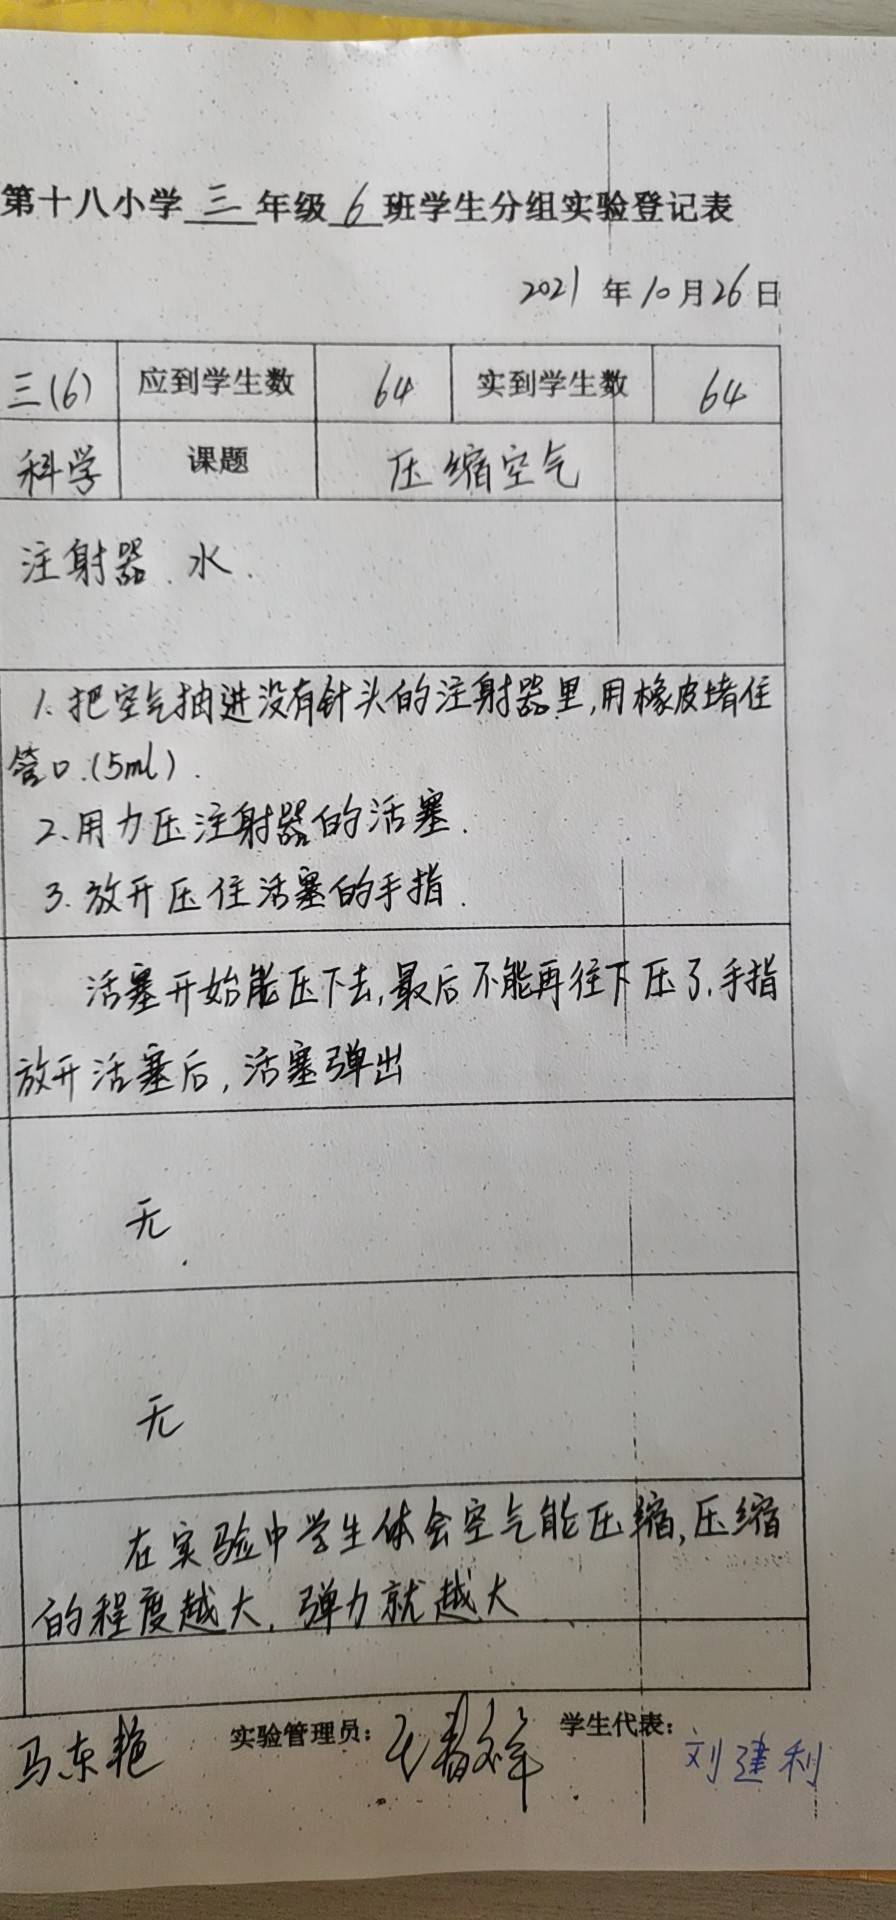 第十八小学 三 年级 6 班学生分组实验登记表
2021 年 10 月 26 日
三(6) 应到学生数 64 实到学生数 64
科学 课题 压缩空气
注射器、水.
1. 把空气抽进没有针头的注射器里,用橡皮堵住
管口.(5ml).
2. 用力压注射器的活塞.
3. 放开压住活塞的手指.
活塞开始能压下去,最后不能再往下压了.手指
放开活塞后,活塞弹出
无
无
在实验中学生体会空气能压缩,压缩
的程度越大,弹力就越大
马东艳 实验管理员: 学生代表: 刘建利